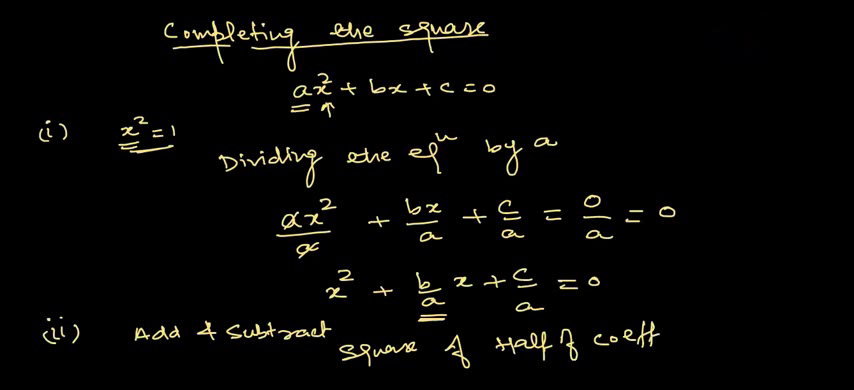 Completing the square
ax² + bx + c = 0
(i) x² = 1
Dividing the eqⁿ by a
ax²/a + bx/a + c/a = 0/a = 0
x² + b/a x + c/a = 0
(ii) Add & Subtract square of Half of coeff